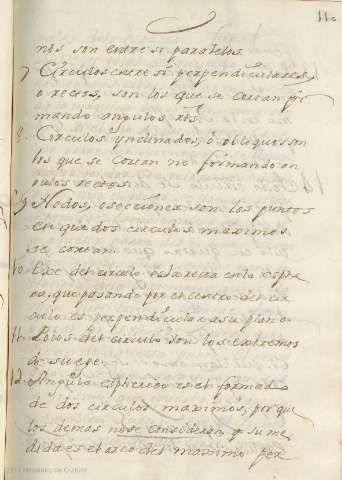 110
nos son entre si paralelos.
7 Circulos entre si perpendiculares,
o rectos, son los que se cortan for
mando angulos rtōs.
8. Circulos ynclinados, ò obliquos son
los que se cortan no formando an
gulos rectos.
9 Nodos, o secciones son los puntos
en que dos circulos maximos
se cortan.
10. Exe del circulo es la recta en la esphe
ra, que pasando por el centro del cir
culo es perpendicular a su plano.
11. Polos del circulo son los extremos
de su exe.
12. Angulo espherico es el formado
de dos circulos maximos, porque
los demas no se consideran, y su me
dida es el arco del maximo per
Ministerio de Cultura